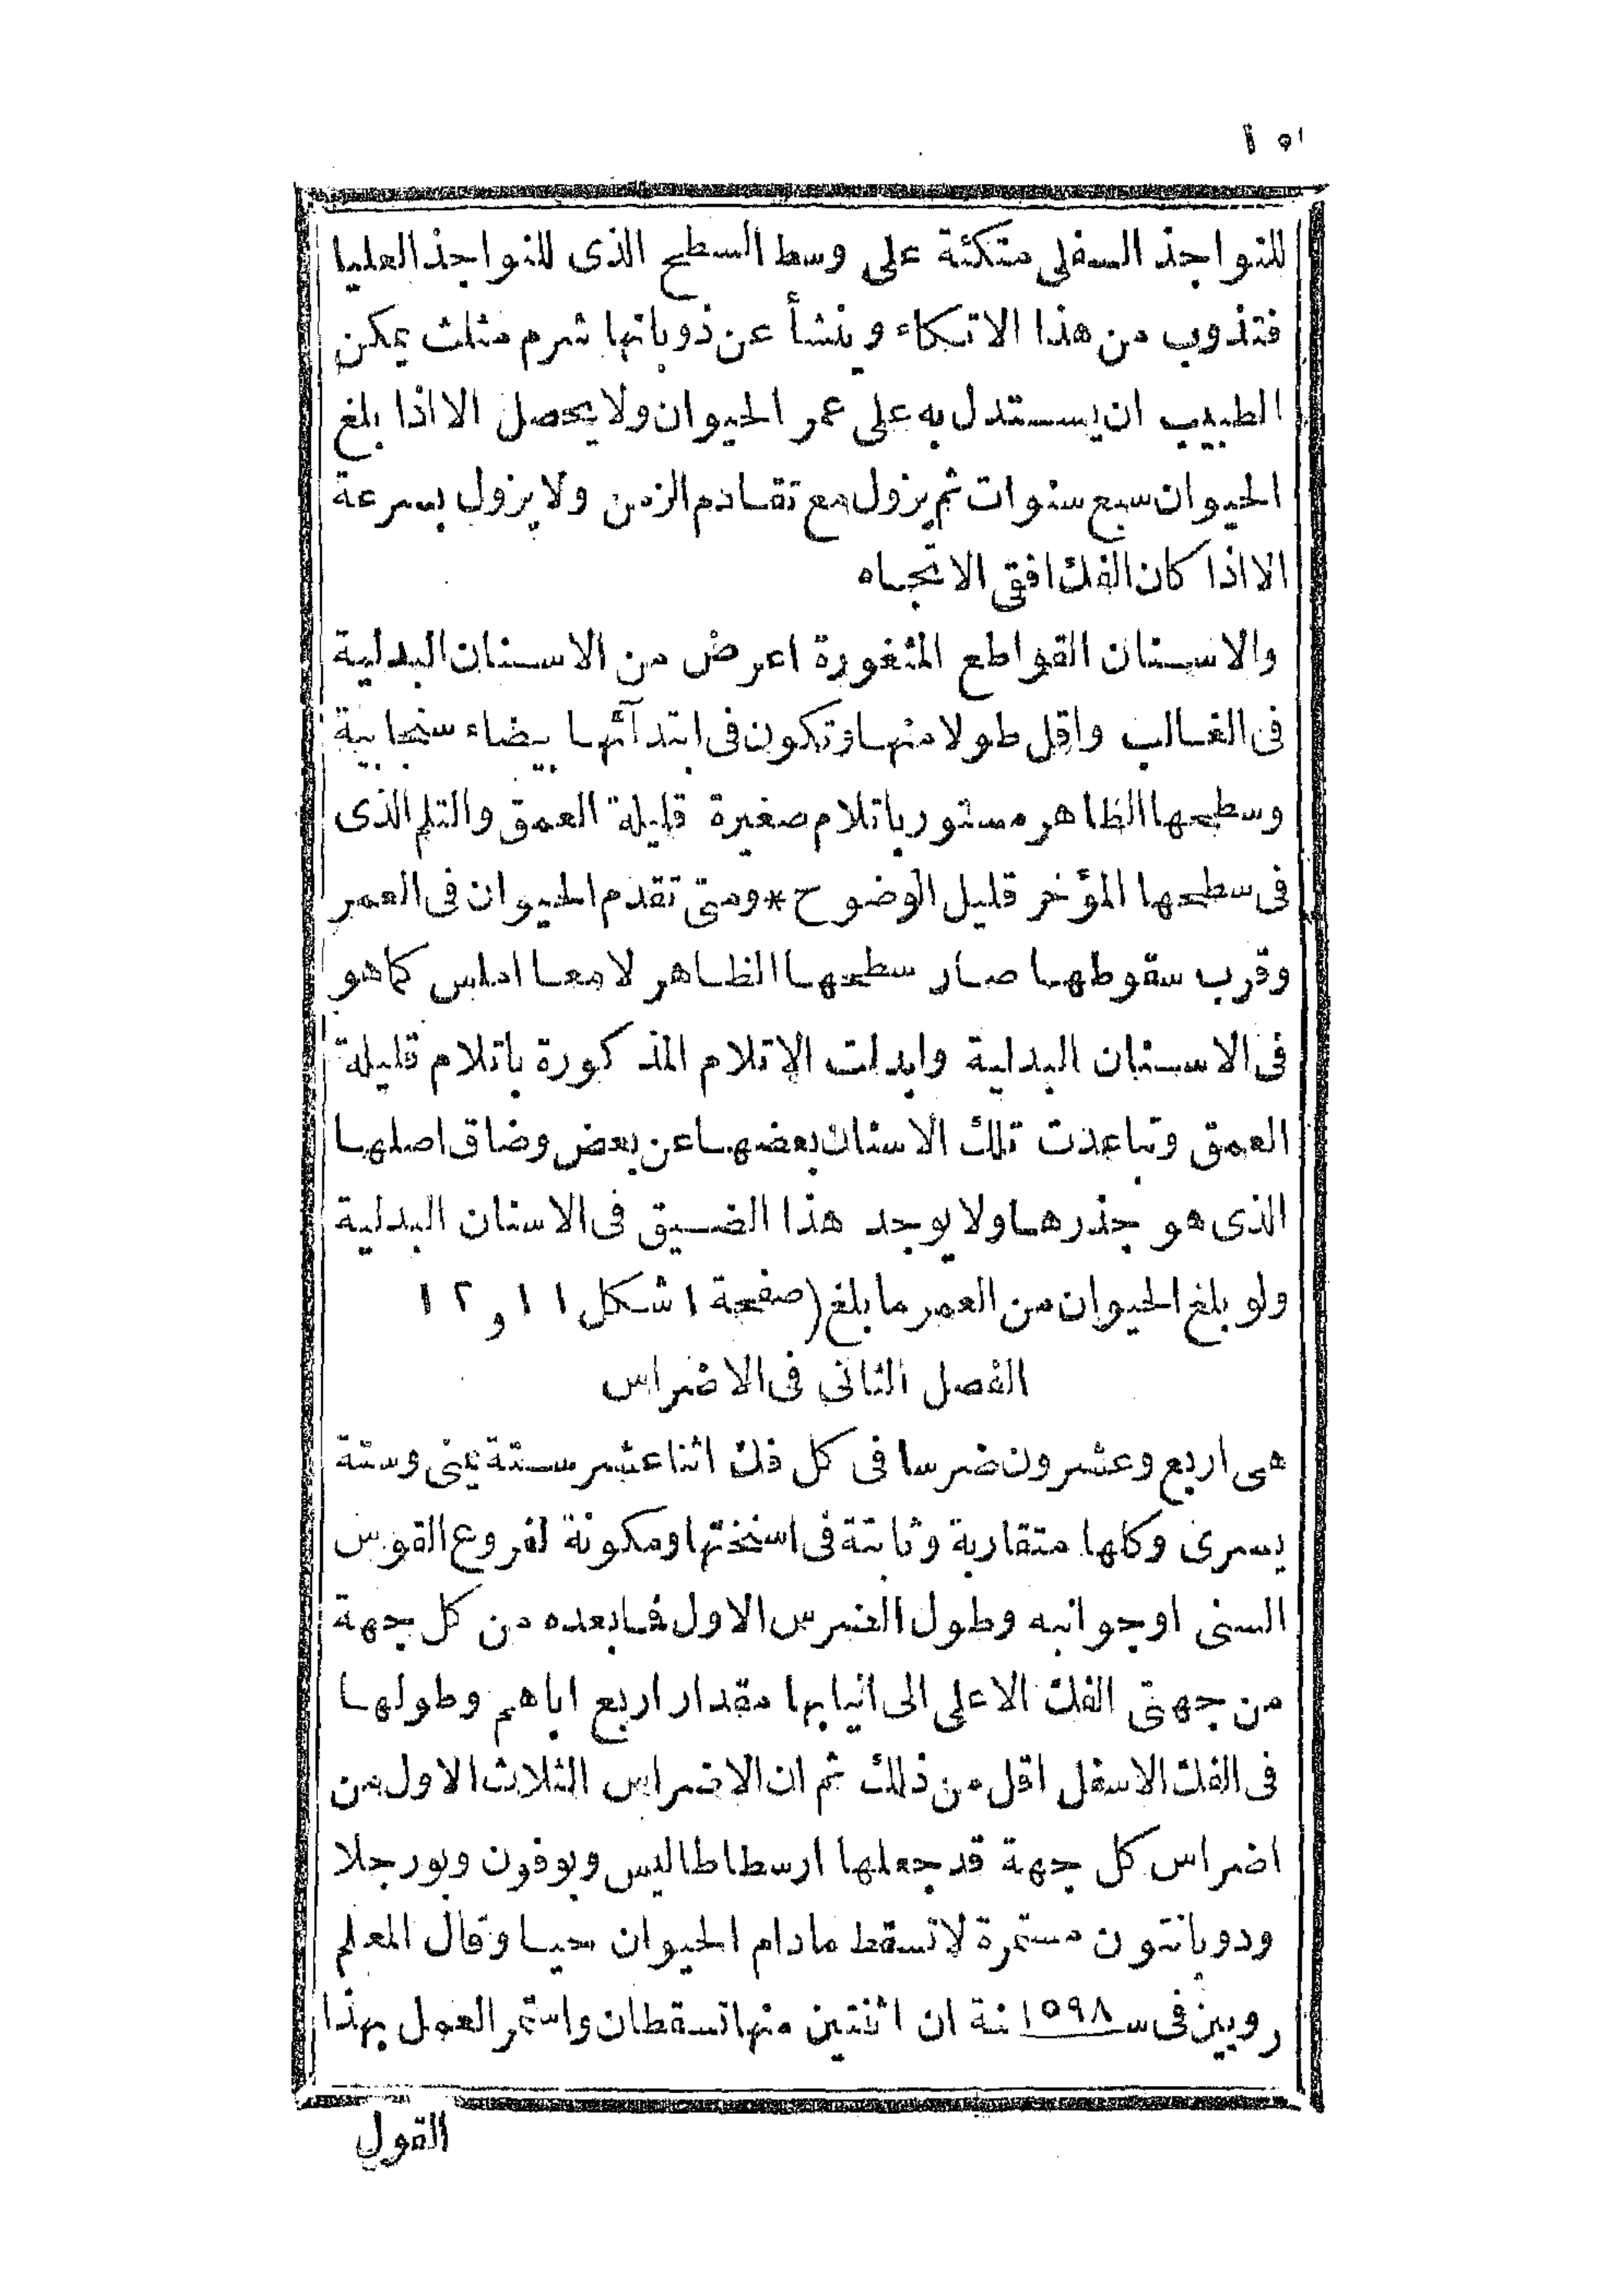 للنواجذ السفلى متكئة على وسط السطح الذى للنواجذ العليا
فتذوب من هذا الاتكاء وينشأ عن ذوبانها شرم مثلث يمكن
الطبيب ان يستدل به على عمر الحيوان ولا يحصل الا اذا بلغ
الحيوان سبع سنوات ثم يزول مع تقادم الزمن ولا يزول بسرعة
الا اذا كان الفك افقى الاتجاه
والاسنان القواطع المثغورة اعرض من الاسنان البدلية
فى الغالب واقل طولا منها وتكون فى ابتدآئها بيضاء سنجابية
وسطحها الظاهر مستور باتلام صغيرة قليلة العمق والتلم الذى
فى سطحها المؤخر قليل الوضوح * ومتى تقدم الحيوان فى العمر
وقرب سقوطها صار سطحها الظاهر لامعا املس كما هو
فى الاسنان البدلية وابدلت الاتلام المذكورة باتلام قليلة
العمق وتباعدت تلك الاسنان بعضها عن بعض وضاق اصلها
الذى هو جذرها ولا يوجد هذا الضيق فى الاسنان البدلية
ولو بلغ الحيوان من العمر ما بلغ (صفحة ١ شكل ١١ و ١٢
الفصل الثانى فى الاضراس
هى اربع وعشرون ضرسا فى كل فك اثنا عشر ستة يمنى وستة
يسرى وكلها متقاربة وثابتة فى اسنختها ومكونة لفروع القوس
السنى او جوانبه وطول الضرس الاول فما بعده من كل جهة
من جهتى الفك الاعلى الى انيابها مقدار اربع اباهم وطولها
فى الفك الاسفل اقل من ذلك ثم ان الاضراس الثلاث الاول من
اضراس كل جهة قد جعلها ارسطاطاليس وبوفون وبورجلا
ودوبانتون مستمرة لا تسقط مادام الحيوان حيا وقال المعلم
روبين فى سنة ١٥٩٨ ان اثنتين منها تسقطان واستمر العمل بهذا
القول